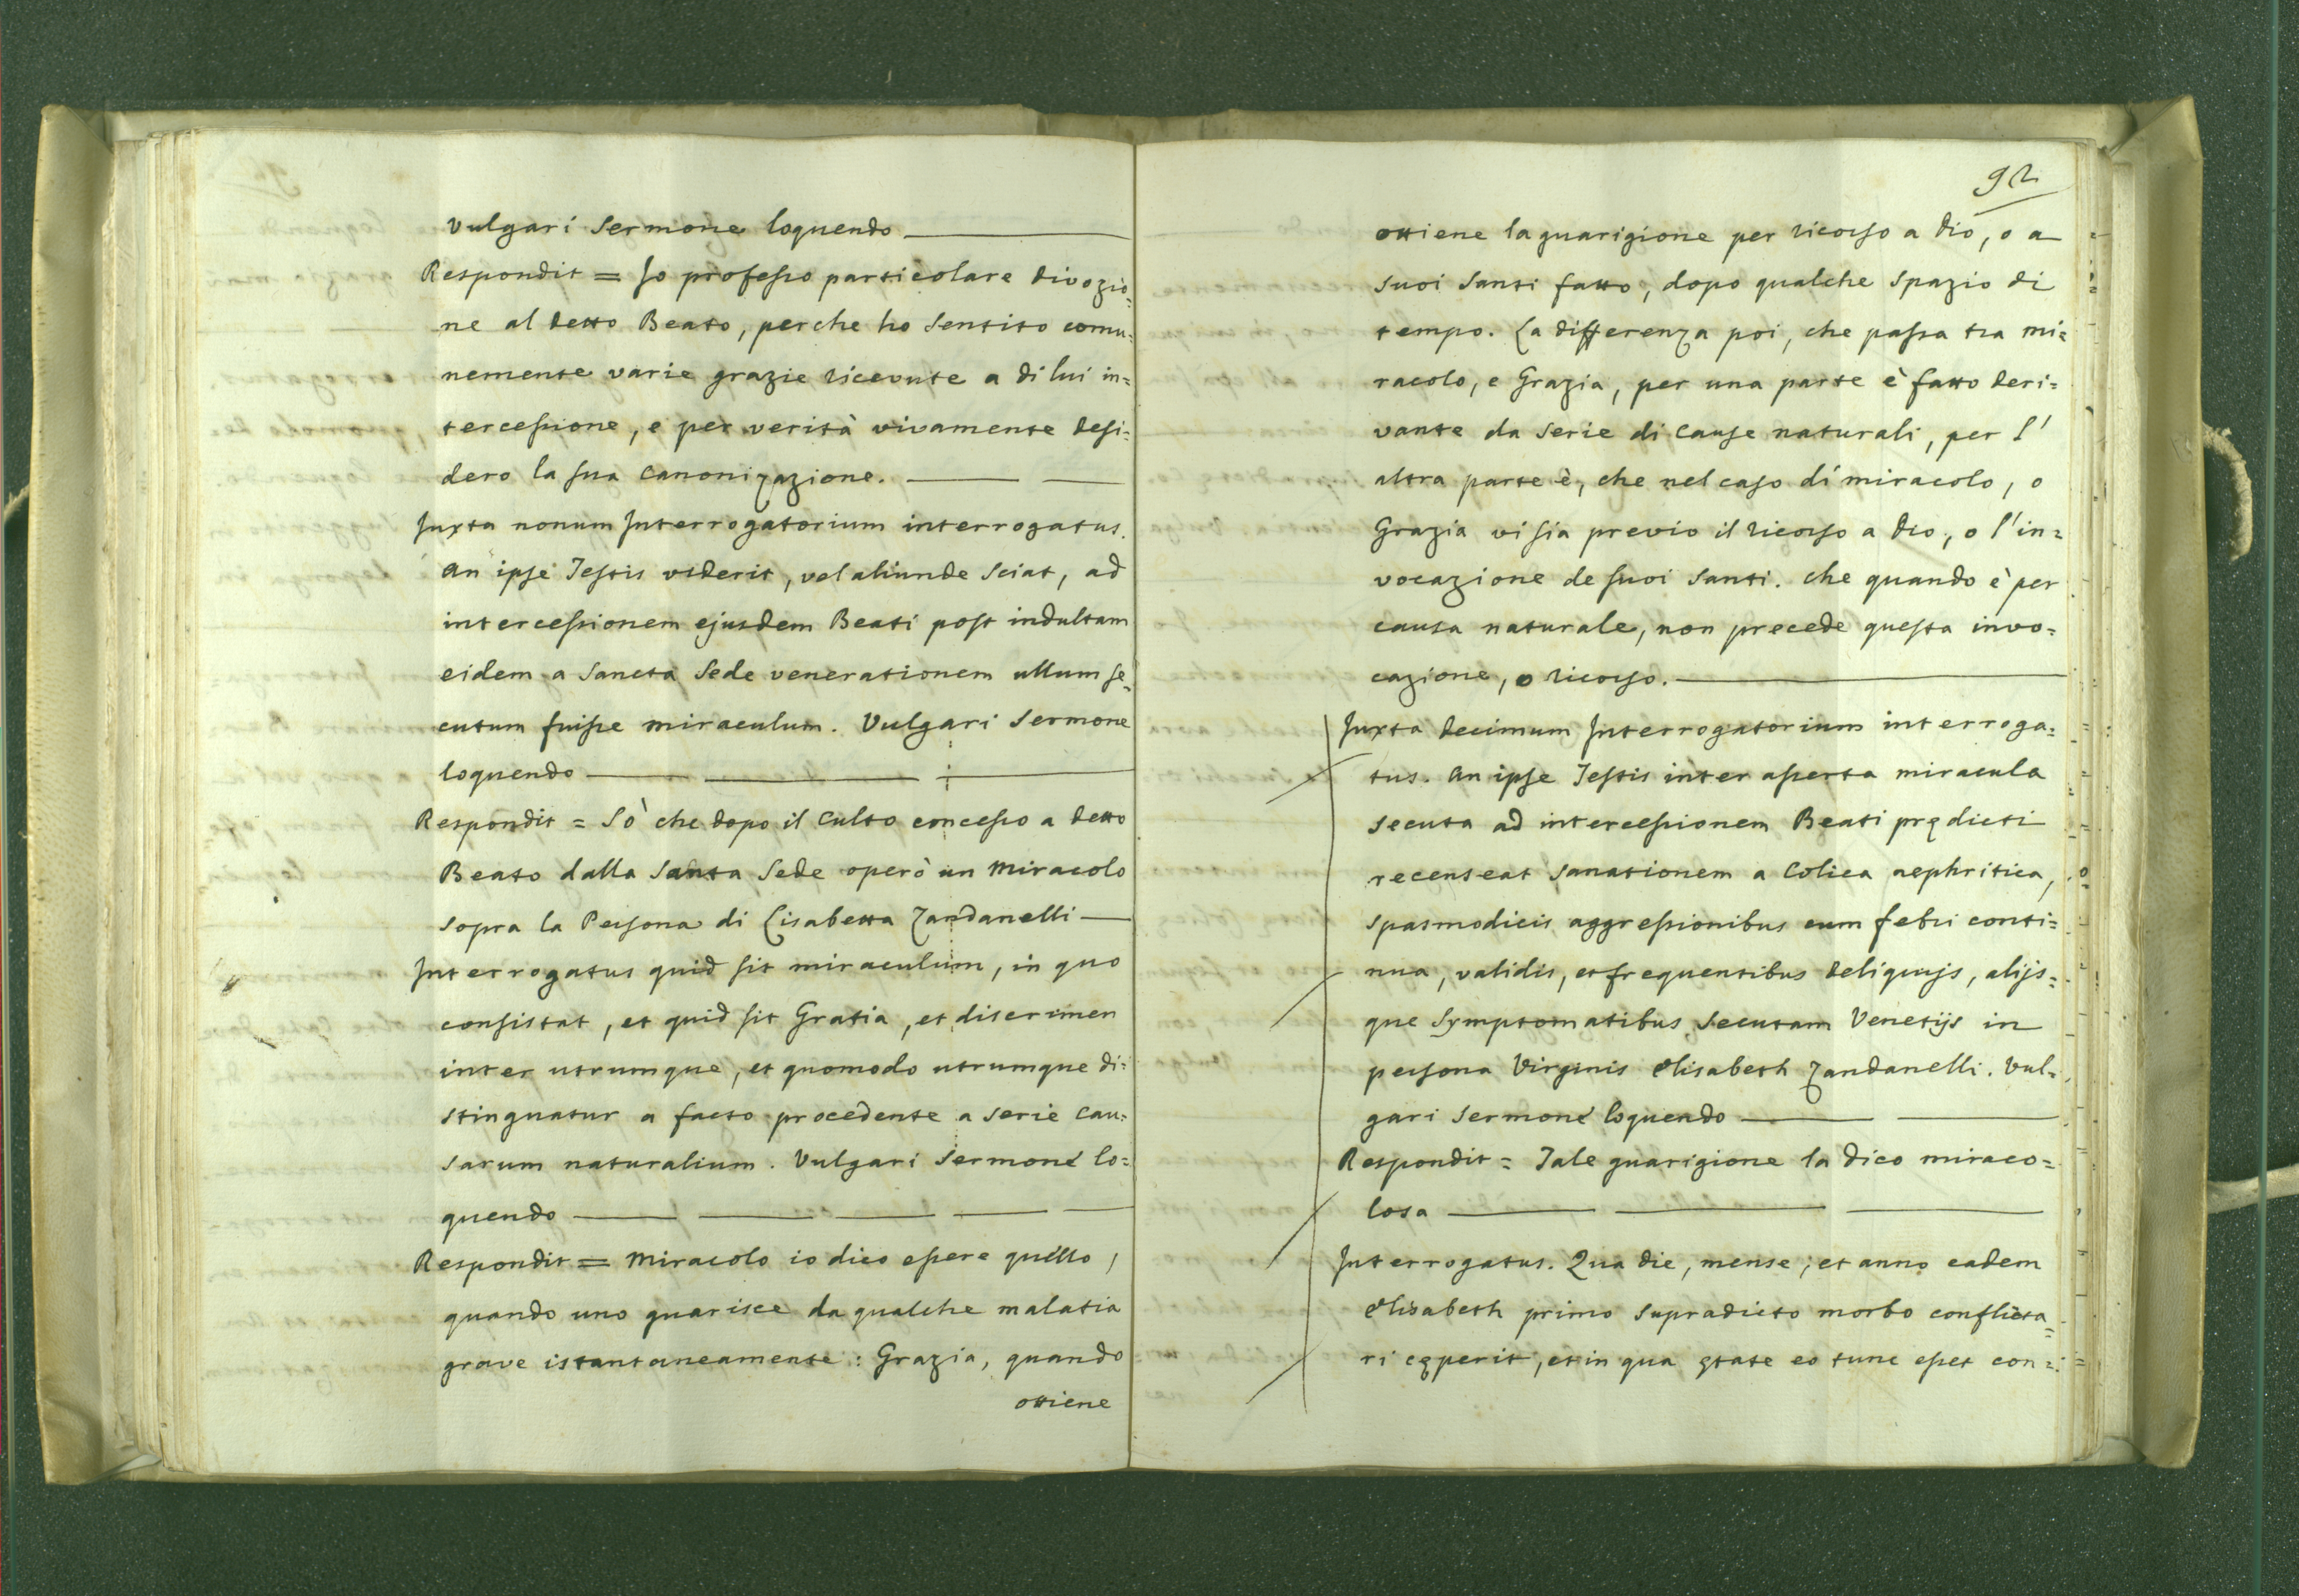 Vulgari Sermone loquendo
Respondit = Io professo particolare divozio=
ne al detto Beato, perche ho sentito comu=
nemente varie grazie ricevute a di lui in=
tercessione, e per verità vivamente desi=
dero la sua canonizazione.
Juxta nonum Interrogatorium interrogatus.
An ipse Testis viderit, vel aliunde sciat, ad
intercessionem ejusdem Beati post indultam
eidem a Sancta Sede venerationem ullum se=
cutum fuisse miraculum. Vulgari Sermone
loquendo
Respondit = Sò che dopo il Culto concesso a detto
Beato dalla Santa Sede operò un Miracolo
sopra la Persona di Lisabetta Zandanelli
Interrogatus quid sit miraculum, in quo
consistat, et quid sit Gratia, et discrimen
inter utrumque, et quomodo utrumque di=
stinguatur a facto procedente a serie cau=
sarum naturalium. Vulgari Sermone lo=
quendo
Respondit = Miracolo io dico essere quello,
quando uno guarisce da qualche malatia
grave istantaneamente: Grazia, quando
ottiene
92
ottiene la guarigione per ricorso a Dio, o a
suoi Santi fatto, dopo qualche spazio di
tempo. La differenza poi, che passa tra mi=
racolo, e Grazia, per una parte è fatto deri=
vante da serie di cause naturali, per l'
altra parte è, che nel caso di miracolo, o
Grazia vi sia previo il ricorso a Dio, o l'in=
vocazione de suoi Santi. che quando è per
causa naturale, non precede questa invo=
cazione, o ricorso.
Juxta decimum Interrogatorium interroga=
tus. An ipse Testis inter asserta miracula
secuta ad intercessionem Beati prędicti
recenseat sanationem a Colica nephritica,
spasmodicis aggressionibus cum febri conti=
nua, validis, et frequentibus deliquijs, alijs=
que Symptomatibus secutam Venetijs in
persona Virginis Elisabeth Zandanelli. Vul=
gari Sermone loquendo
Respondit = Tale guarigione la dico miraco=
losa
Interrogatus. Qua die, mense, et anno eadem
Elisabeth primo supradicto morbo conflicta=
ri cęperit, et in qua ętate eo tunc esset con=